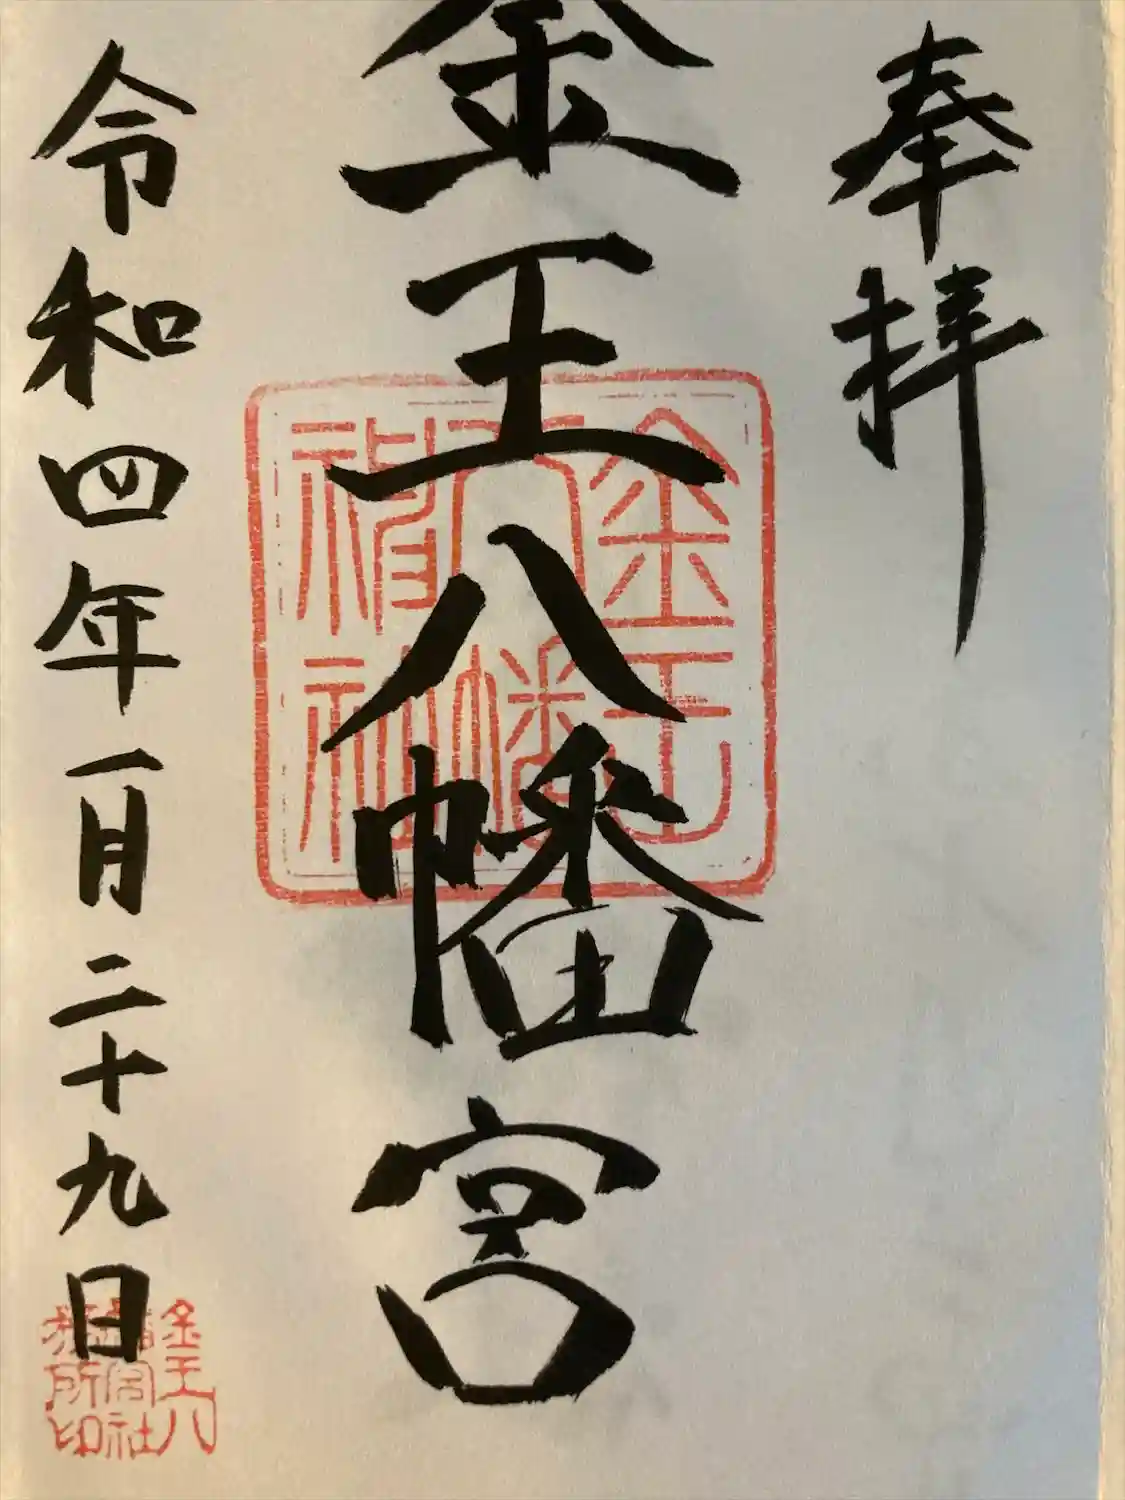 奉拝
金王八幡宮
令和四年一月二十九日
金王
八幡
神社
金王八
幡宮社
務所印